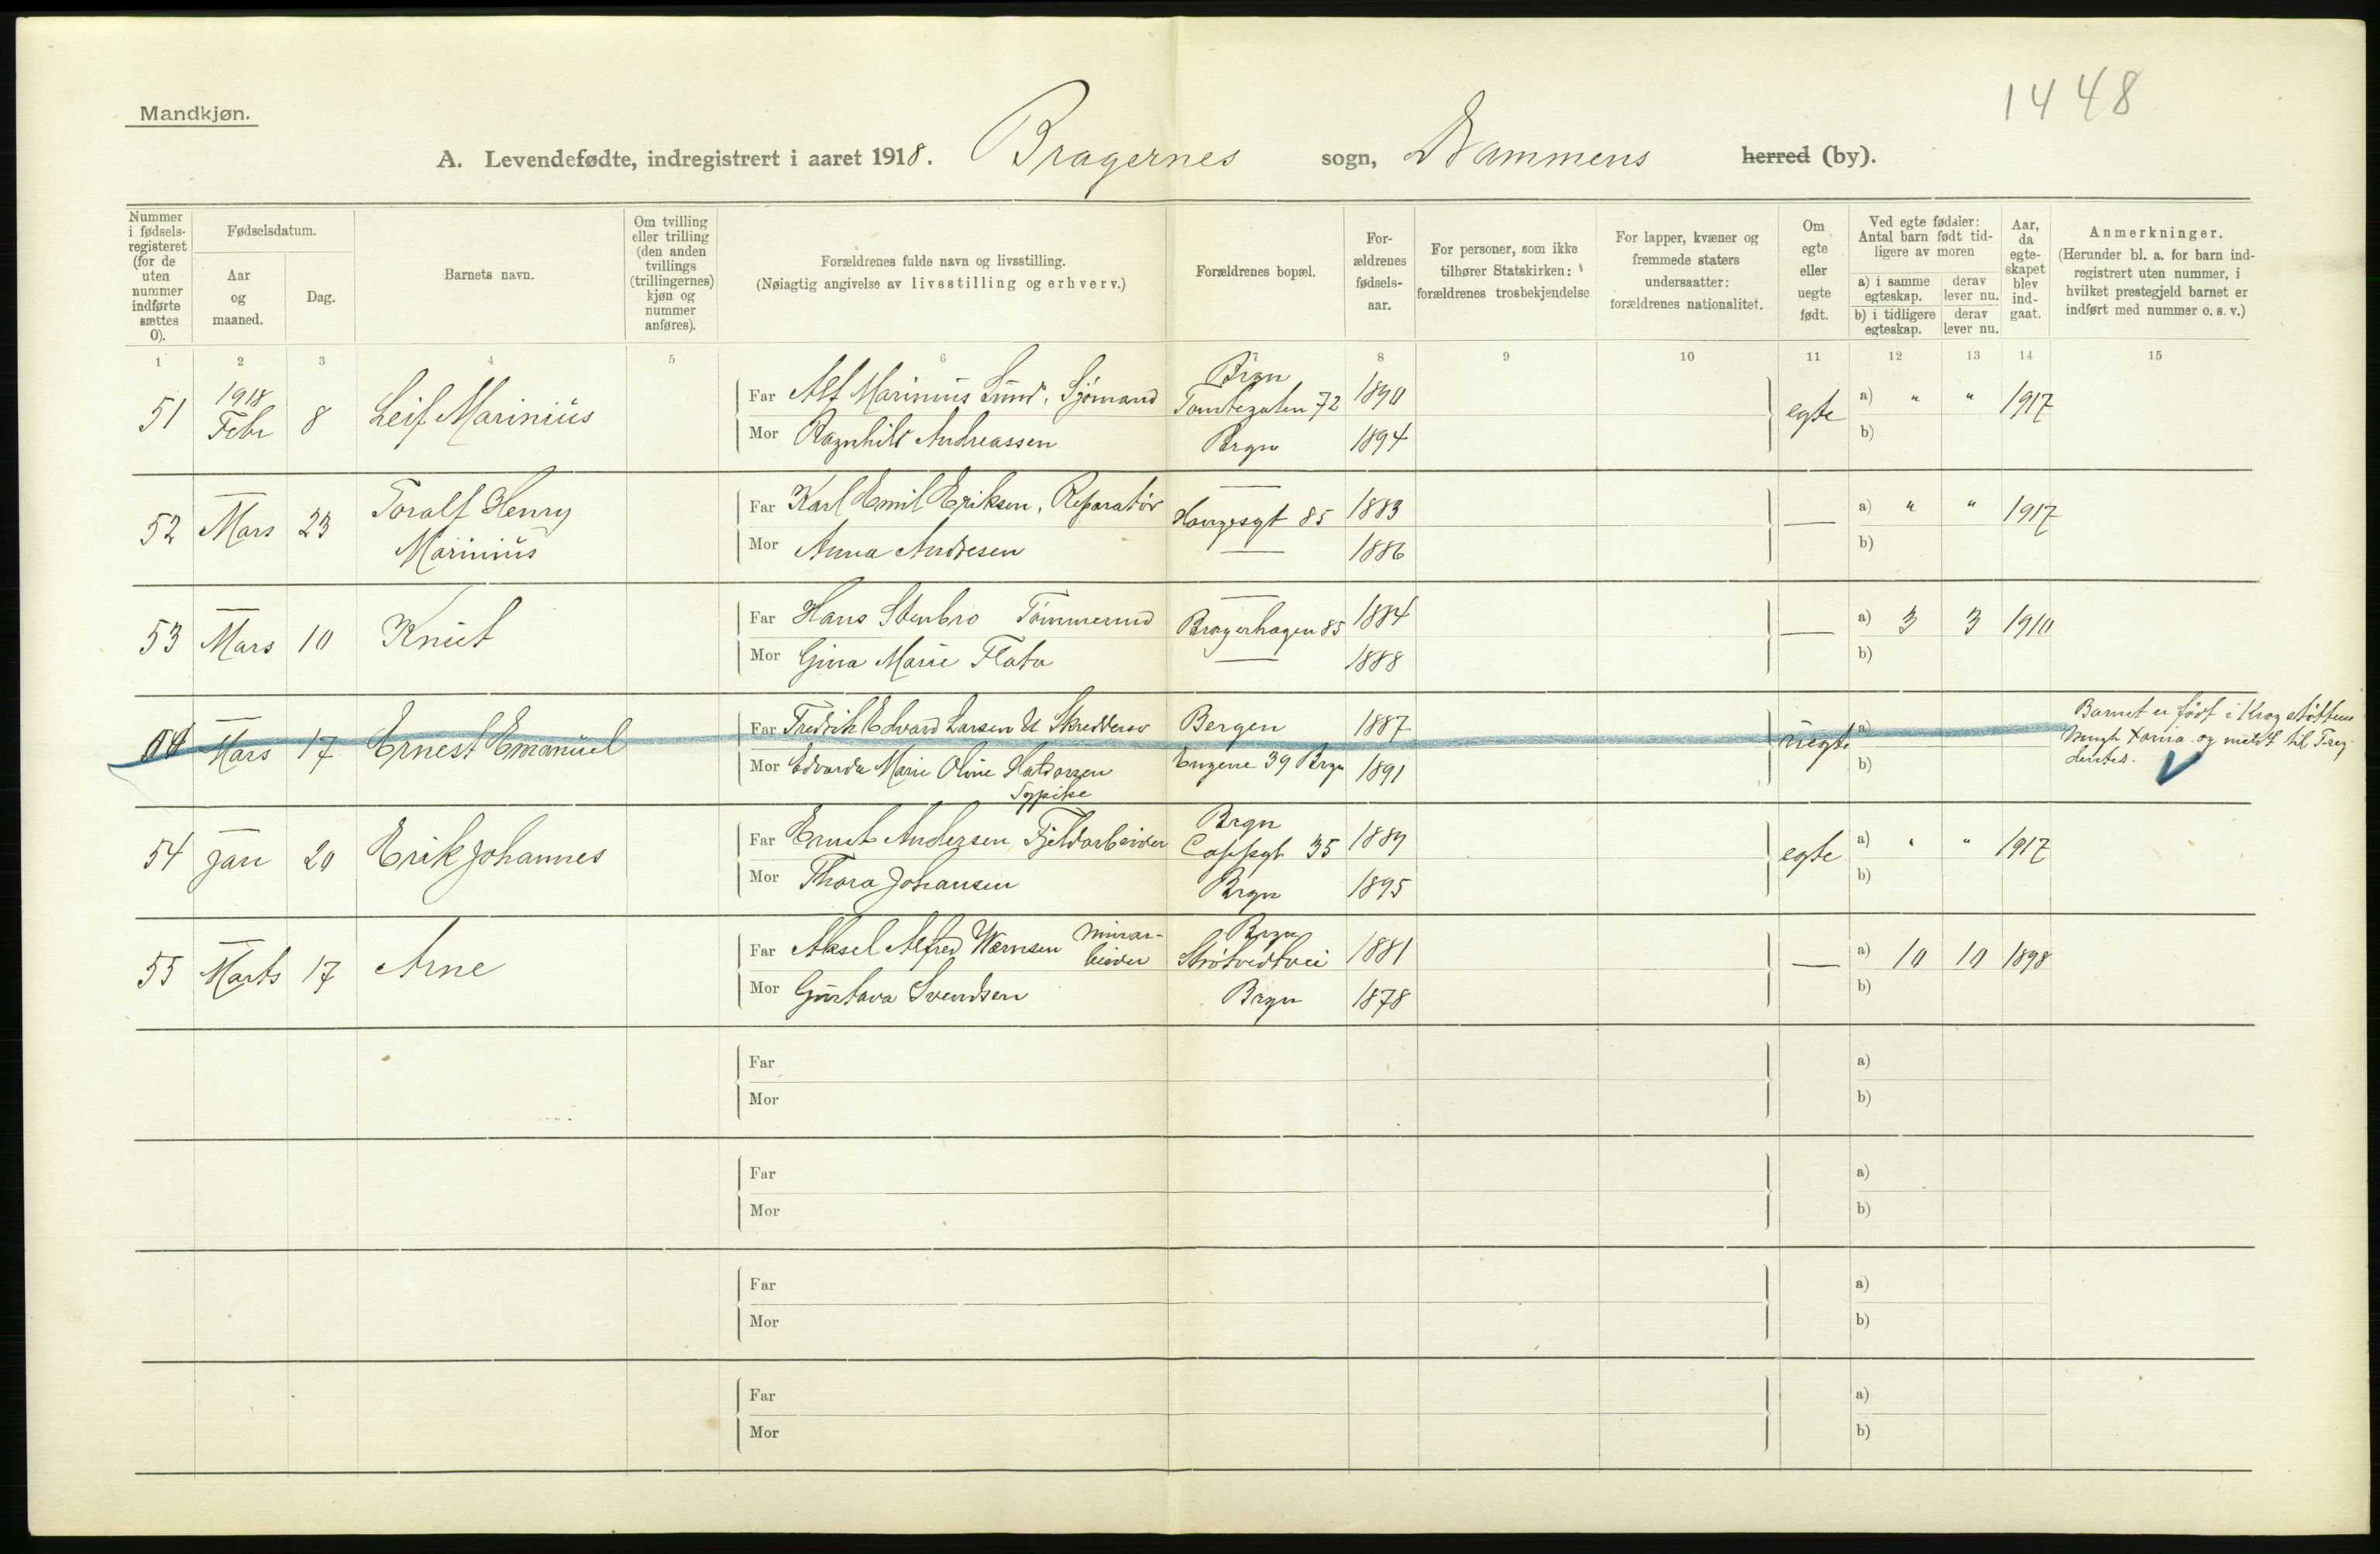 1448
Mandkjøn.
A. Levendefødte, indregistrert i aaret 1918. Bragernes sogn, Drammens herred (by).
Nummer i fødsels-registeret (for de uten nummer indførte sættes 0).
Fødselsdatum.
Aar og maaned.
Dag.
Barnets navn.
Om tvilling eller trilling (den anden tvillings (trillingernes) kjøn og nummer anføres).
Forældrenes fulde navn og livsstilling.
(Nøiagtig angivelse av livsstilling og erhverv.)
Forældrenes bopæl.
For-ældrenes fødsels-aar.
For personer, som ikke tilhører Statskirken: forældrenes trosbekjendelse
For lapper, kvæner og fremmede staters undersaatter: forældrenes nationalitet.
Om egte eller uegte født.
Ved egte fødsler: Antal barn født tid-ligere av moren
a) i samme egteskap.
derav lever nu.
b) i tidligere egteskap.
derav lever nu.
Aar, da egte-skapet blev ind-gaat.
Anmerkninger.
(Herunder bl. a. for barn ind-registrert uten nummer, i hvilket prestegjeld barnet er indført med nummer o. s. v.)
1 2 3 4 5 6 7 8 9 10 11 12 13 14 15
51 1918 Febr 8 Leif Marinius Far Alf Marinius Lund, Sjømand Brgn Tomtegaten 72 1890 egte a) " " 1917
Mor Ragnhild Andreassen Brgn 1894 b)
52 — Mars 23 Toralf Henry Marinius Far Karl Emil Eriksen, Reparatør — Haugesgt 85 1883 — a) " " 1917
Mor Anna Andresen — 1886 b)
53 — Mars 10 Knut Far Hans Stenbro Tømmermd — Bragerhagen 85 1884 — a) 3 3 1910
Mor Gina Marie Flata — 1888 b)
54 — Mars 17 Ernest Emanuel Far Fredrik Edvard Larsen Skreddersv Bergen 1887 uegte a) Barnet er født i
Mor Edvarda Marie Oline Engene 39 Brgn 1891 b) og meldt til
54 — Jan 20 Erik Johannes Far Ernst Andersen, Fjeldarbeider Brgn Cappgt 35 1889 egte a) " " 1917
Mor Thora Johansen Brgn 1895 b)
55 — Marts 17 Arne Far Aksel Alfred Wærnsen Murar-beider Brgn Strøtvedtvei 1881 — a) 10 10 1898
Mor Gustava Svendsen Brgn 1878 b)
Far a)
Mor b)
Far a)
Mor b)
Far a)
Mor b)
Far a)
Mor b)